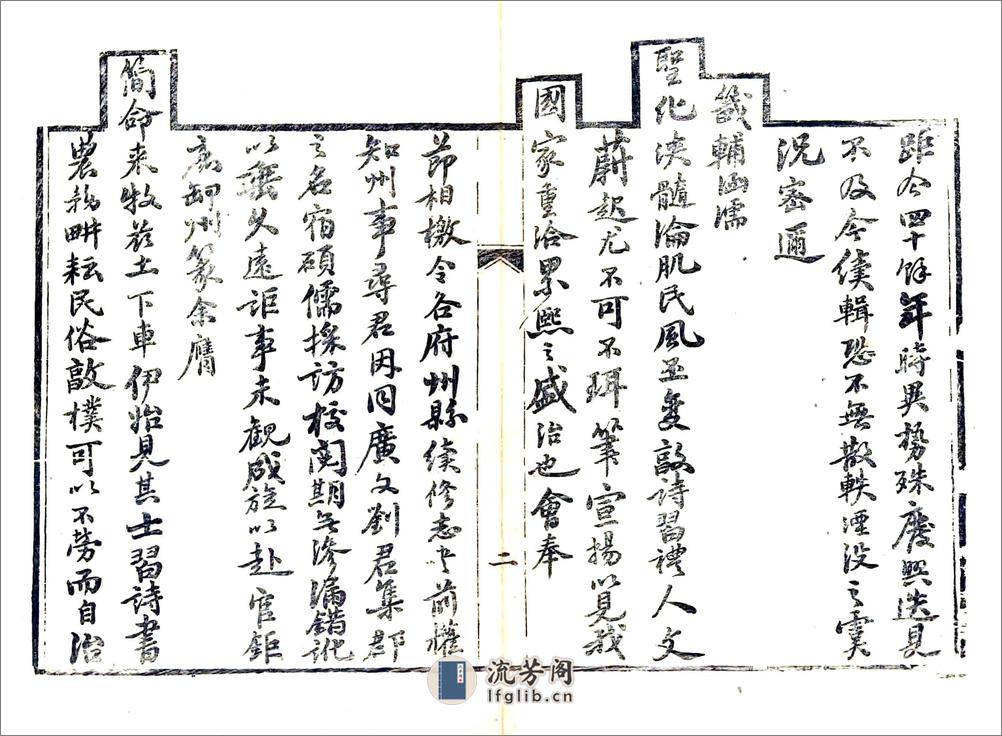 距今四十餘年時異勢殊廢興迭見
不及今續輯恐不無散軼湮没之虞
況密邇
畿輔涵濡
聖化浹髓淪肌民風丕變敦詩習禮人文
蔚起尤不可不珥筆宣揚以見我
國家重洽累熙之盛治也會奉
節相檄令各府州縣續修志書前權
知州事尋君因同廣文劉君集郡
之名宿碩儒採訪校閱期無滲漏錯訛
以垂久遠詎事未觀成旋以赴官鉅
鹿卸州篆余膺
簡命來牧茲土下車伊始見其士習詩書
農務畊耘民俗敦樸可以不勞而自治
二
流芳阁
lfglib.cn